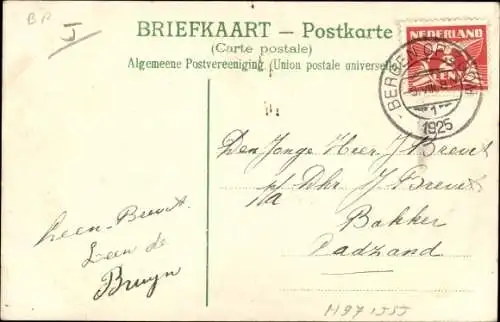 BR
J
BRIEFKAART - Postkarte
(Carte postale)
Algemeene Postvereeniging (Union postale universelle)
NEDERLAND
CENT
BERGEN OP ZOOM
1
1925
Den Jonge Heer J Brevet
p/a Dhr J Brevet
Bakker
Zadzand
Leen-Brevet.
Leen de
Bruyn
M971JSJ